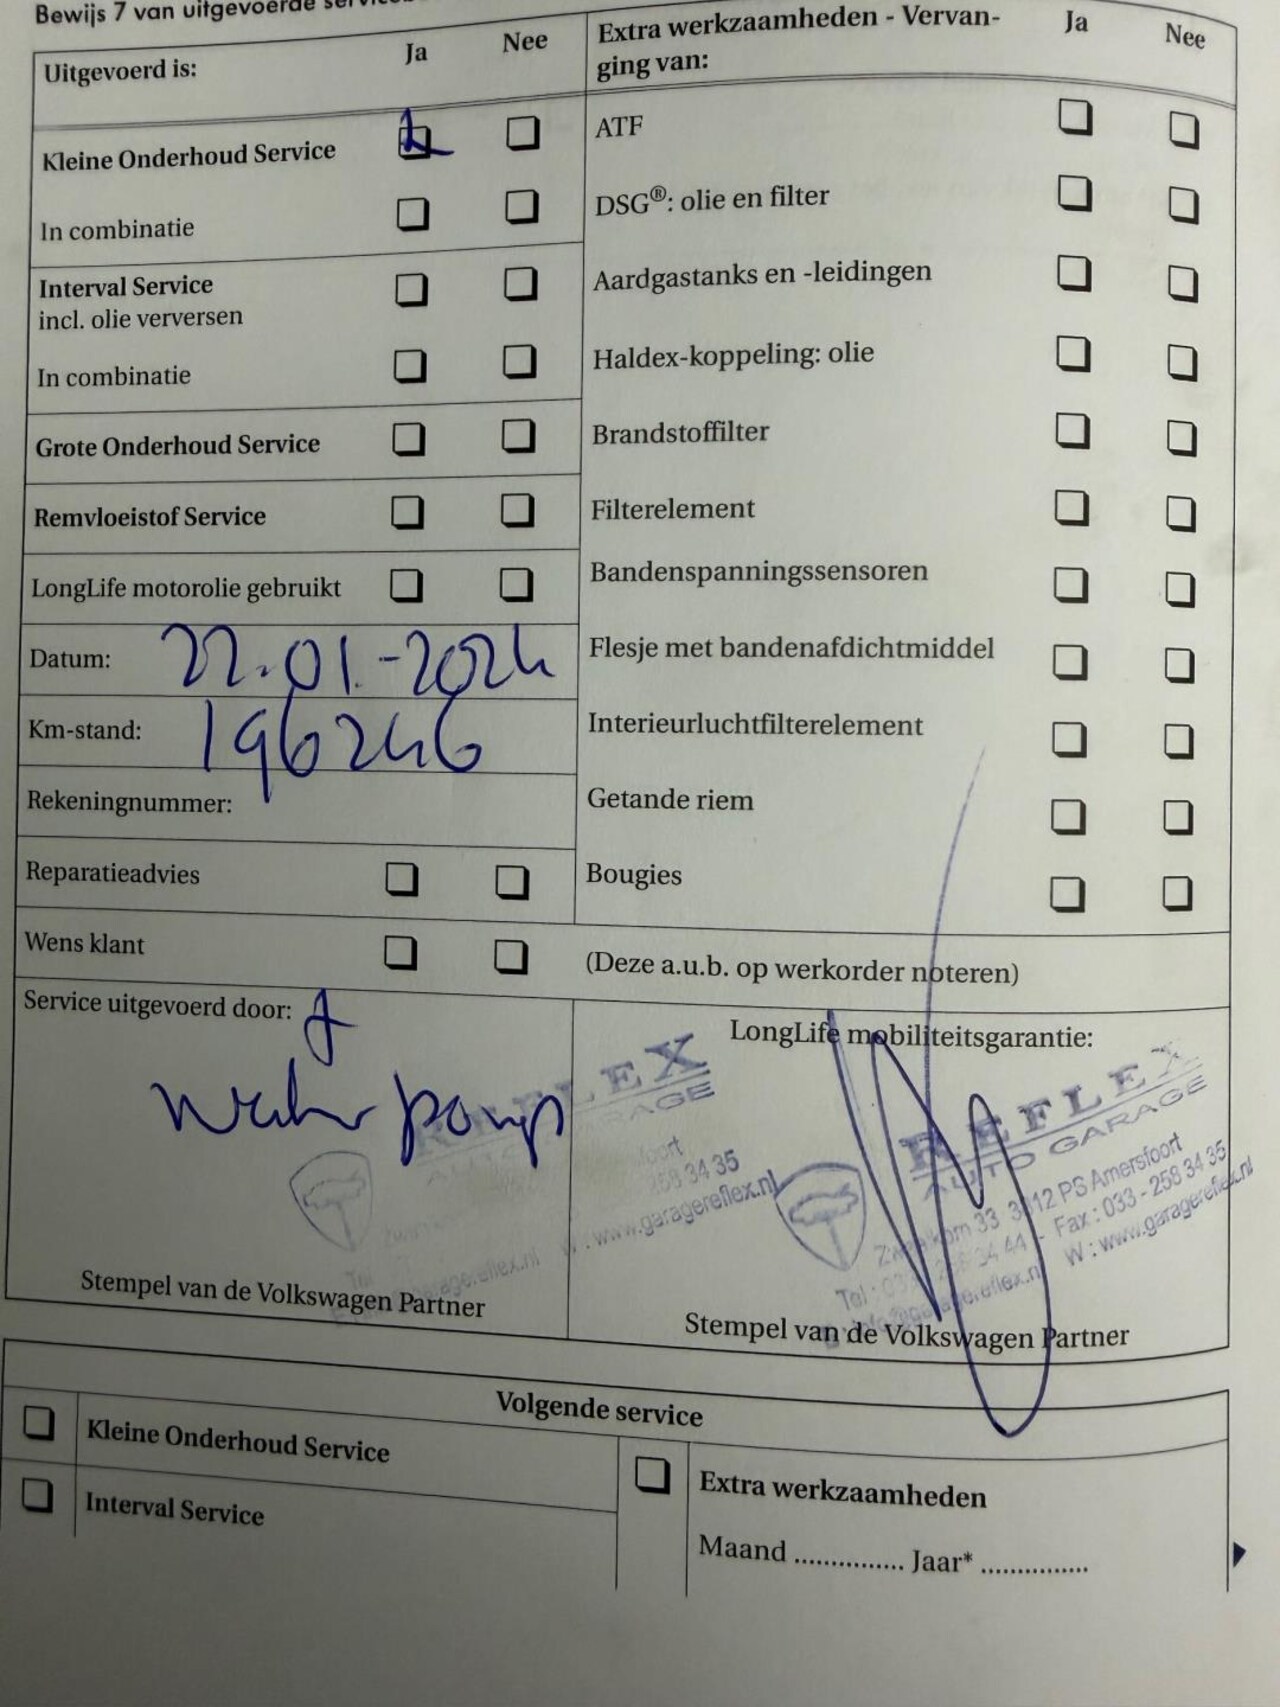 Bewijs 7 van uitgevoerde
Uitgevoerd is: Ja Nee
Kleine Onderhoud Service
In combinatie
Interval Service
incl. olie verversen
In combinatie
Grote Onderhoud Service
Remvloeistof Service
LongLife motorolie gebruikt
Datum: 22-01-2024
Km-stand: 196246
Rekeningnummer:
Reparatieadvies
Wens klant
Extra werkzaamheden - Vervan-
ging van: Ja Nee
ATF
DSG®: olie en filter
Aardgastanks en -leidingen
Haldex-koppeling: olie
Brandstoffilter
Filterelement
Bandenspanningssensoren
Flesje met bandenafdichtmiddel
Interieurluchtfilterelement
Getande riem
Bougies
(Deze a.u.b. op werkorder noteren)
Service uitgevoerd door:
Water pomp
258 34 35
W : www.garagereflex.nl
Stempel van de Volkswagen Partner
LongLife mobiliteitsgarantie:
REFLEX
AUTO GARAGE
33 3812 PS Amersfoort
Fax : 033 - 258 34 35
W : www.garagereflex.nl
Stempel van de Volkswagen Partner
Volgende service
Kleine Onderhoud Service
Interval Service
Extra werkzaamheden
Maand ............... Jaar* ...............